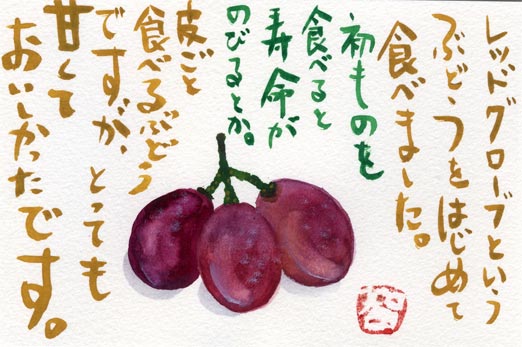 レッドグローブという
ぶどうをはじめて
食べました。
初ものを
食べると
寿命が
のびるとか。
皮ごと
食べるぶどう
ですが、とっても
甘くて
おいしかったです。